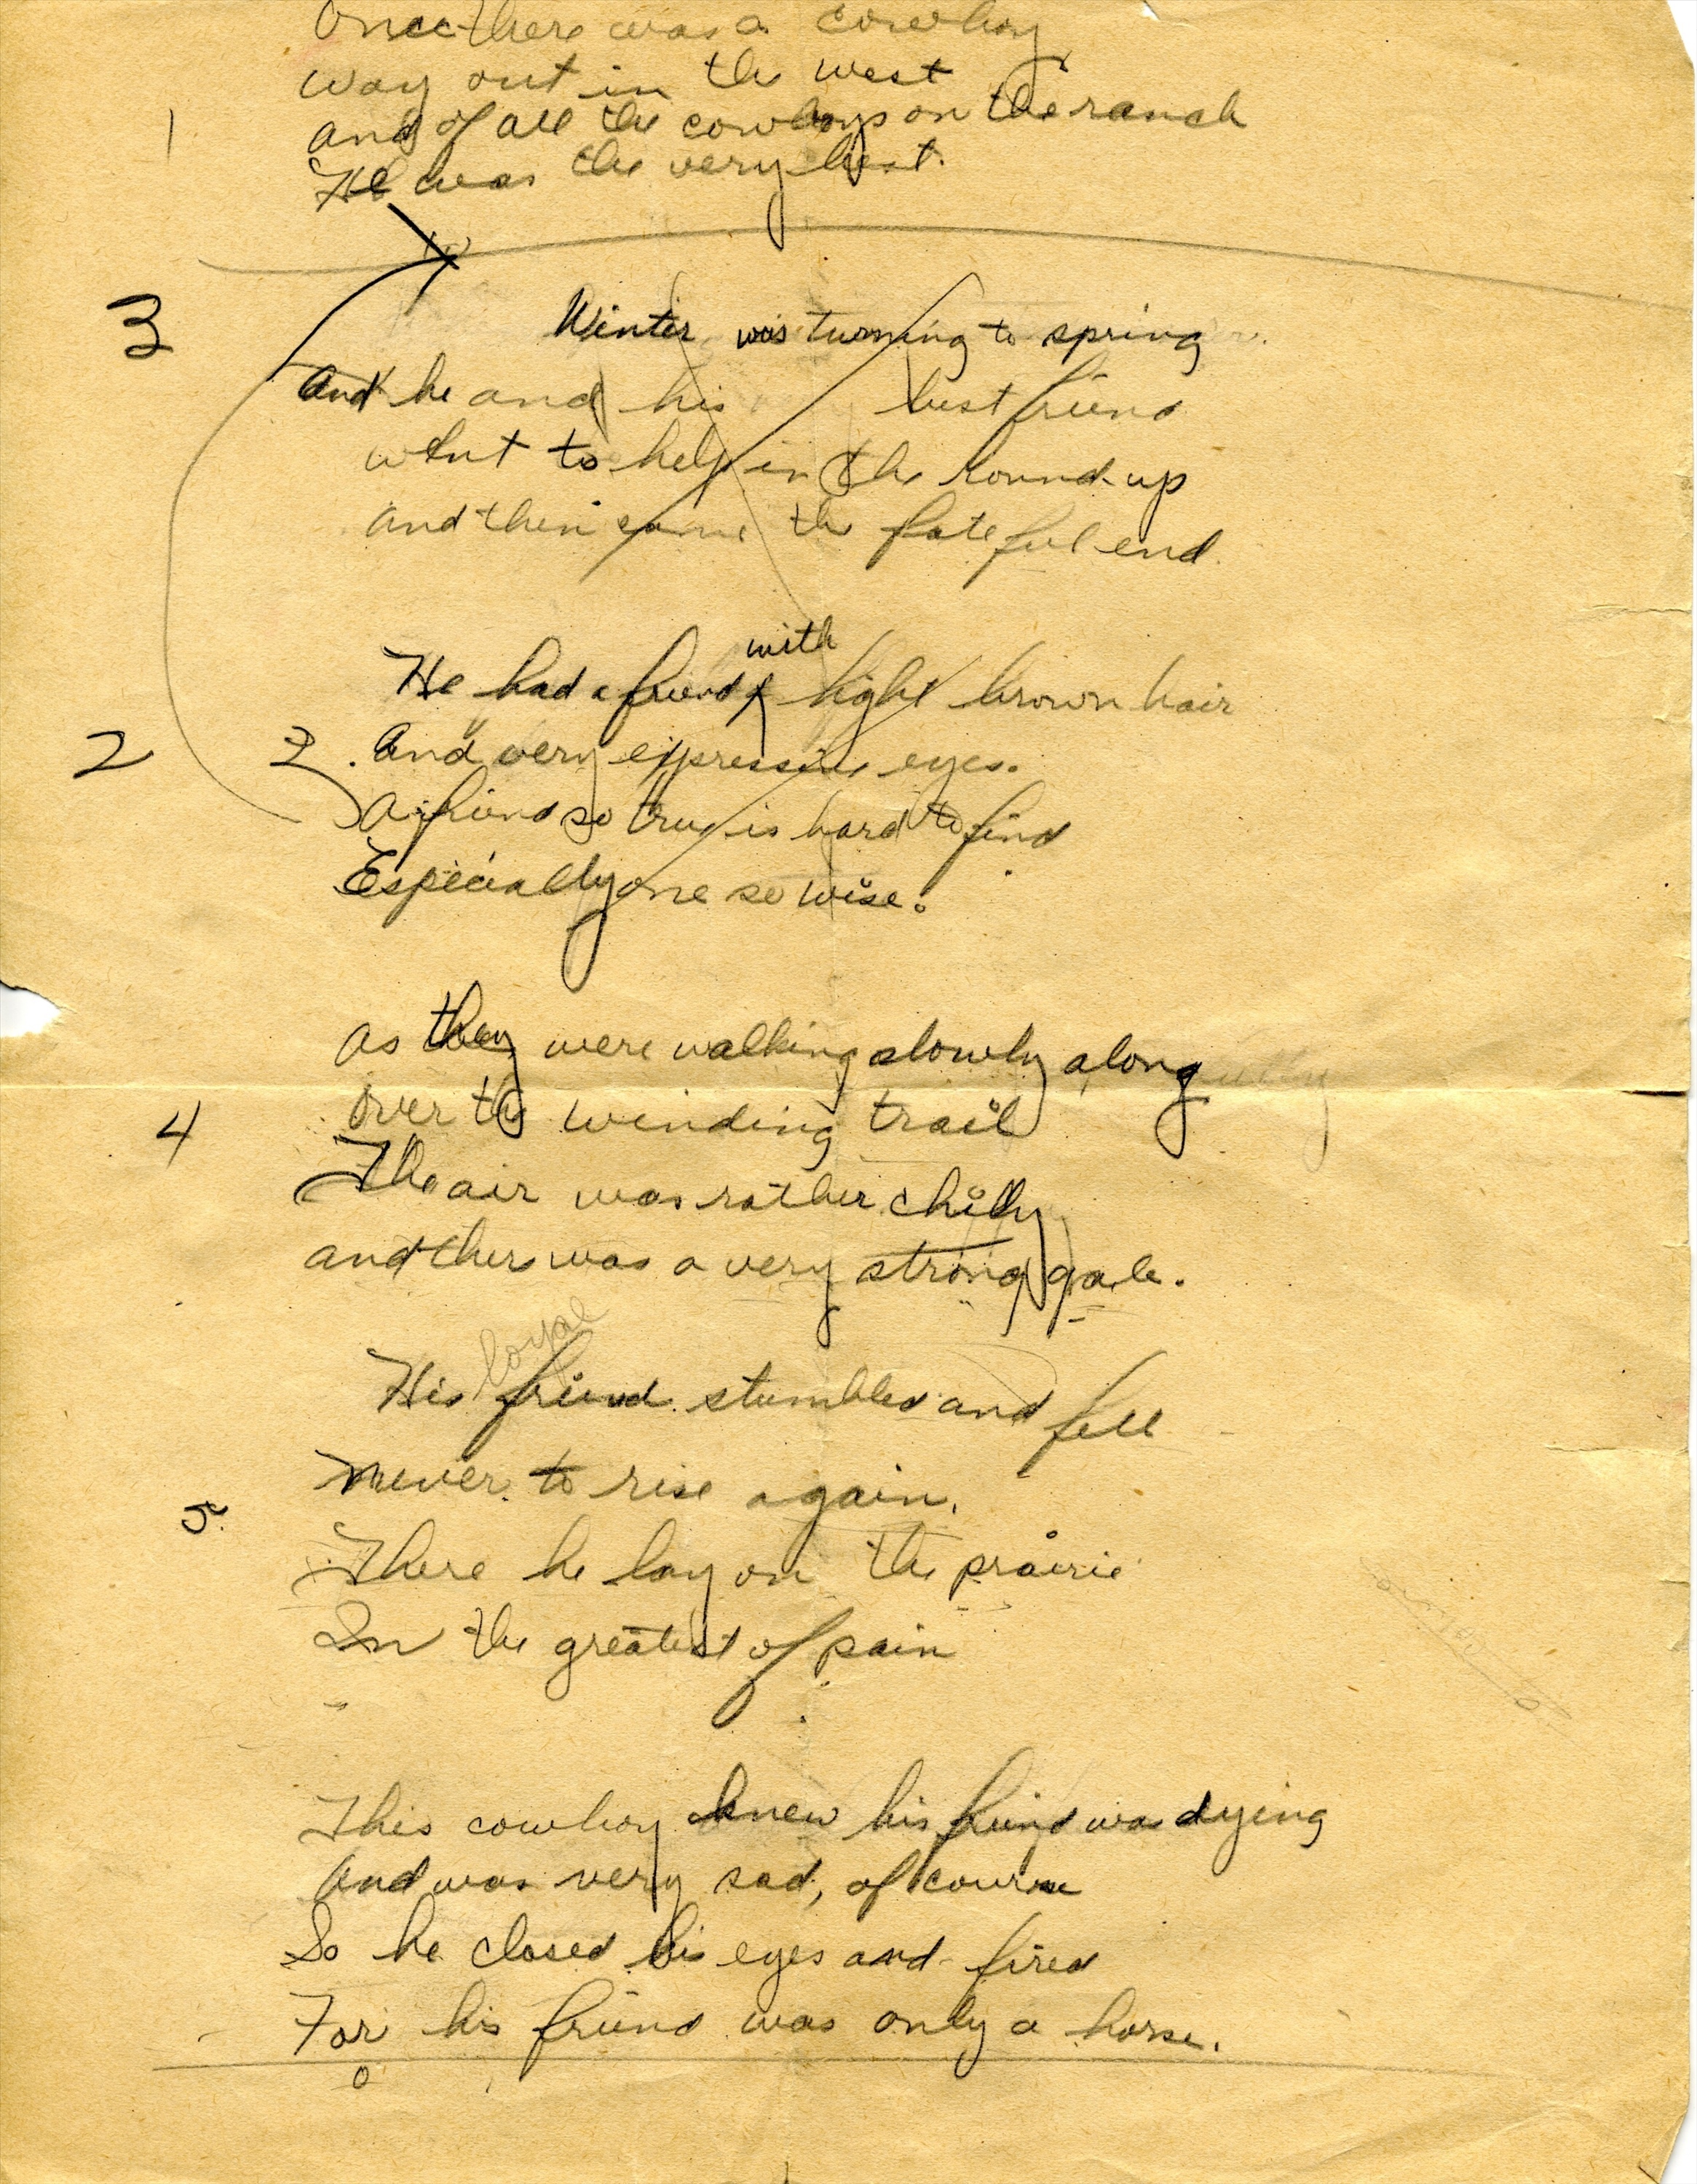 Once there was a cowboy
way out in the west
1
and of all the cowboys on the ranch
He was the very best.
3
Winter was turning to spring
And he and his best friend
went to help in the round-up
and then came the fateful end.
with
He had a friend light brown hair
2 2. And very expressive eyes.
A friend so true is hard to find
Especially one so wise.
As they were walking slowly along
4
over the winding trail
The air was rather chilly
and there was a very strong gale.
loyal
His friend stumbled and fell
Never to rise again.
5.
There he lay on the prairie
In the greatest of pain
This cowboy knew his friend was dying
And was very sad, of course
So he closed his eyes and fired
For his friend was only a horse.